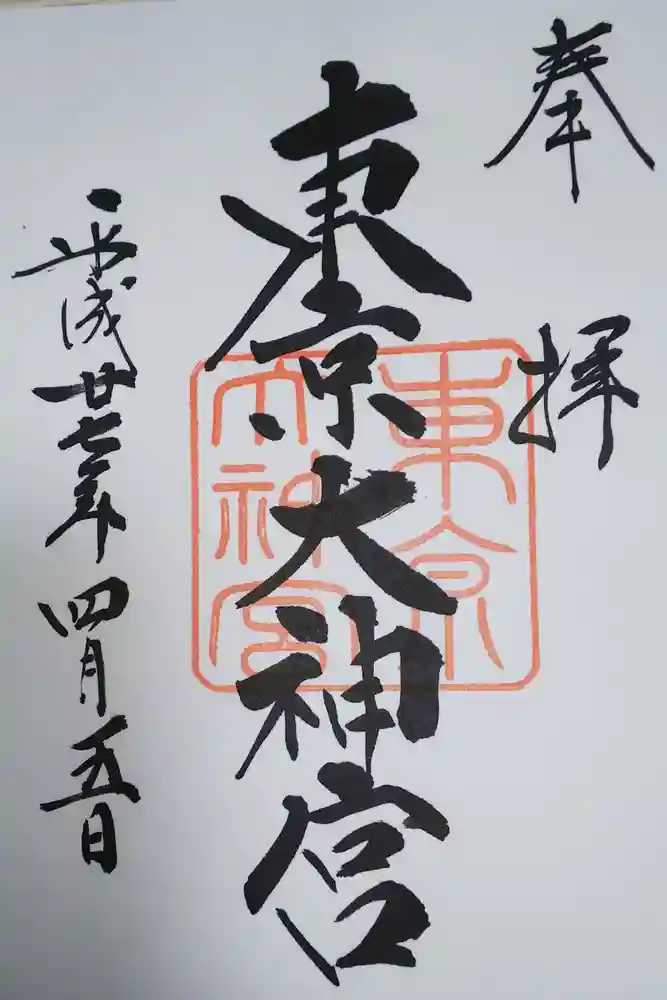 奉拝
東京大神宮
東京
大神宮
平成廿七年四月五日